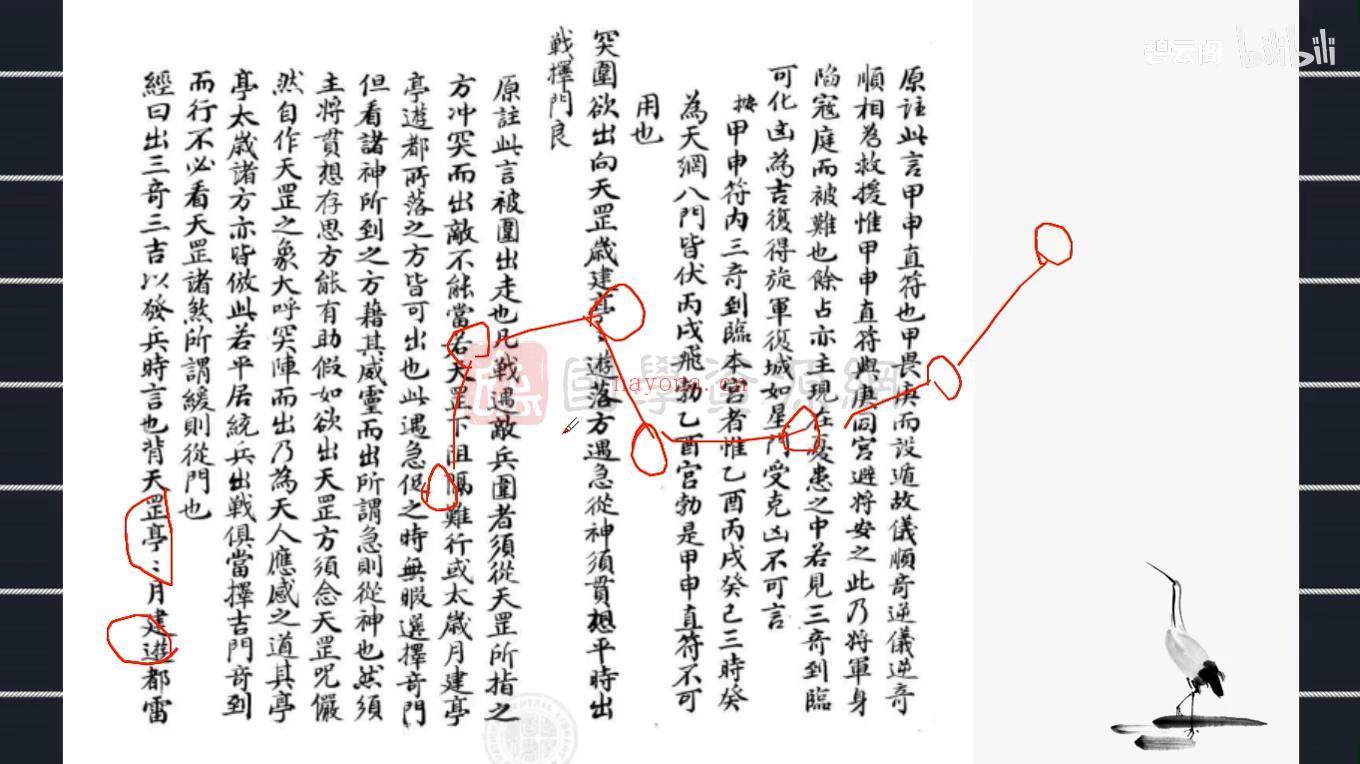 碧云阁 bilibili
原註此言甲申直符也甲畏庚而設遁故儀順奇逆儀逆奇
順相為救援惟甲申直符與庚同宮避將安之此乃將軍身
陷寇庭而被難也餘占亦主現在憂患之中若見三奇到臨
可化凶為吉復得旋軍復城如星門受克凶不可言
按甲申符內三奇到臨本宮者惟乙酉丙戌癸己三時癸
為天網八門皆伏丙戌飛勃乙酉宮勃是甲申直符不可
用也
突圍欲出向天罡歲建亭：遊落方遇急從神須貫想平時出
戰擇門良
原註此言被圍出走也凡戰遇敵兵圍者須從天罡所指之
方冲突而出敵不能當若天罡下阻隔難行或太歲月建亭
亭遊都所落之方皆可出也此遇急促之時無暇選擇奇門
但看諸神所到之方藉其威靈而出所謂急則從神也然須
主將貫想存思方能有助假如欲出天罡方須念天罡咒儼
然自作天罡之象大呼突陣而出乃為天人應感之道其亭
亭太歲諸方亦皆倣此若平居統兵出戰俱當擇吉門奇到
而行不必看天罡諸煞所謂緩則從門也
經曰出三奇三吉以發兵時言也背天罡亭：月建遊都雷
國學資源網
nayona.cn